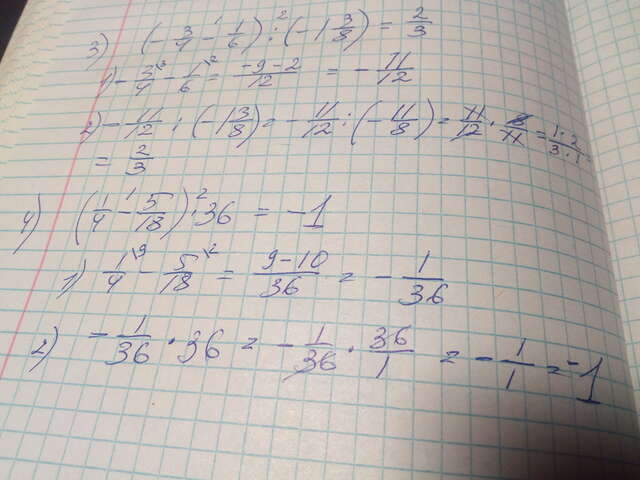 3) (-3/4 - 1/6) : (-1 3/8) = 2/3
1) -3/4 - 1/6 = -9-2/12 = -11/12
2) -11/12 : (-1 3/8) = -11/12 : (-11/8) = 11/12 · 8/11 = 1·2/3·1 =
= 2/3
4) (1/4 - 5/18) · 36 = -1
1) 1/4 - 5/18 = 9-10/36 = -1/36
2) -1/36 · 36 = -1/36 · 36/1 = -1/1 = -1